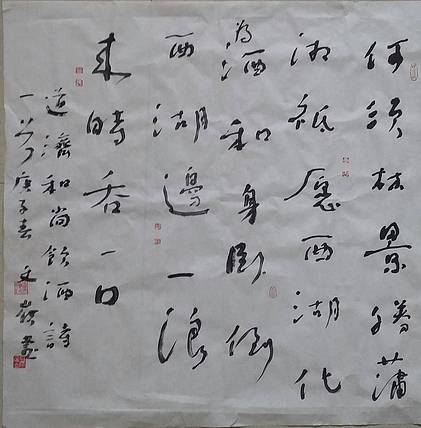 何須林景勝瀟
湘祇愿西湖化
為酒和身卧倒
西湖邊一浪
來時吞一口
道濟和尚飲酒詩
一首庚子春文書